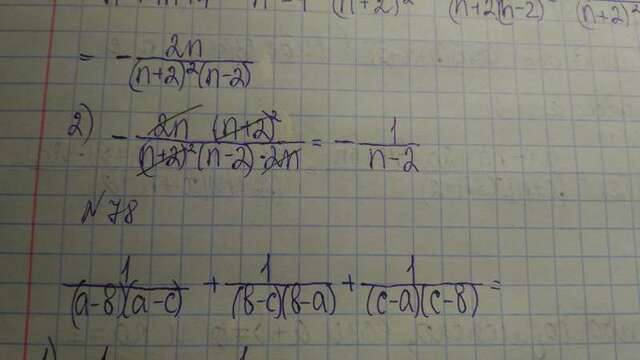 (n+2)² (n+2)(n-2) (n+2)²
= - 2n / (n+2)²(n-2)
2) - 2n (n+2)² / (n+2)²(n-2)·2n = - 1 / n-2
N78
1 / (a-в)(a-c) + 1 / (в-c)(в-a) + 1 / (c-a)(c-в) =